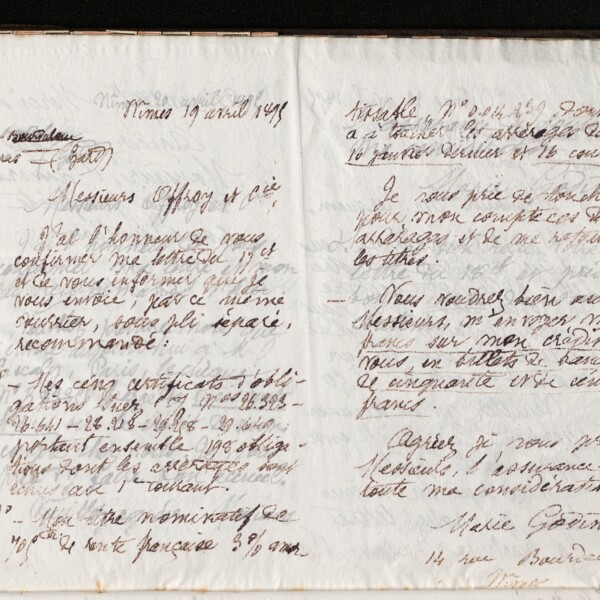 Nîmes 19 avril 1895
(Gard)
Messieurs Offroy et Cie,
J'ai l'honneur de vous
confirmer ma lettre du 17 ct
et de vous informer que je
vous envoie, par ce même
courrier, sous pli séparé,
recommandé:
- Mes cinq certificats d'obli-
gations Nos 26.393-
portant ensemble 198 obliga-
tions dont les arrérages sont
échus au 1er courant.
- Mon titre nominatif de
705 de rente française 3% amor
tissable, No
a à toucher les arrérages d
16 janvier dernier et 16 cou
Je vous prie de touch
pour mon compte ces d
arrérages et de me retou
les titres.
- Vous voudrez bien au
Messieurs, m'envoyer m
francs sur mon crédit
vous, en billets de ban
de cinquante et de cen
francs.
Agréez je vous pr
Messieurs, l'assurance
toute ma considérati
Marie
14 rue Bourda
Nîmes